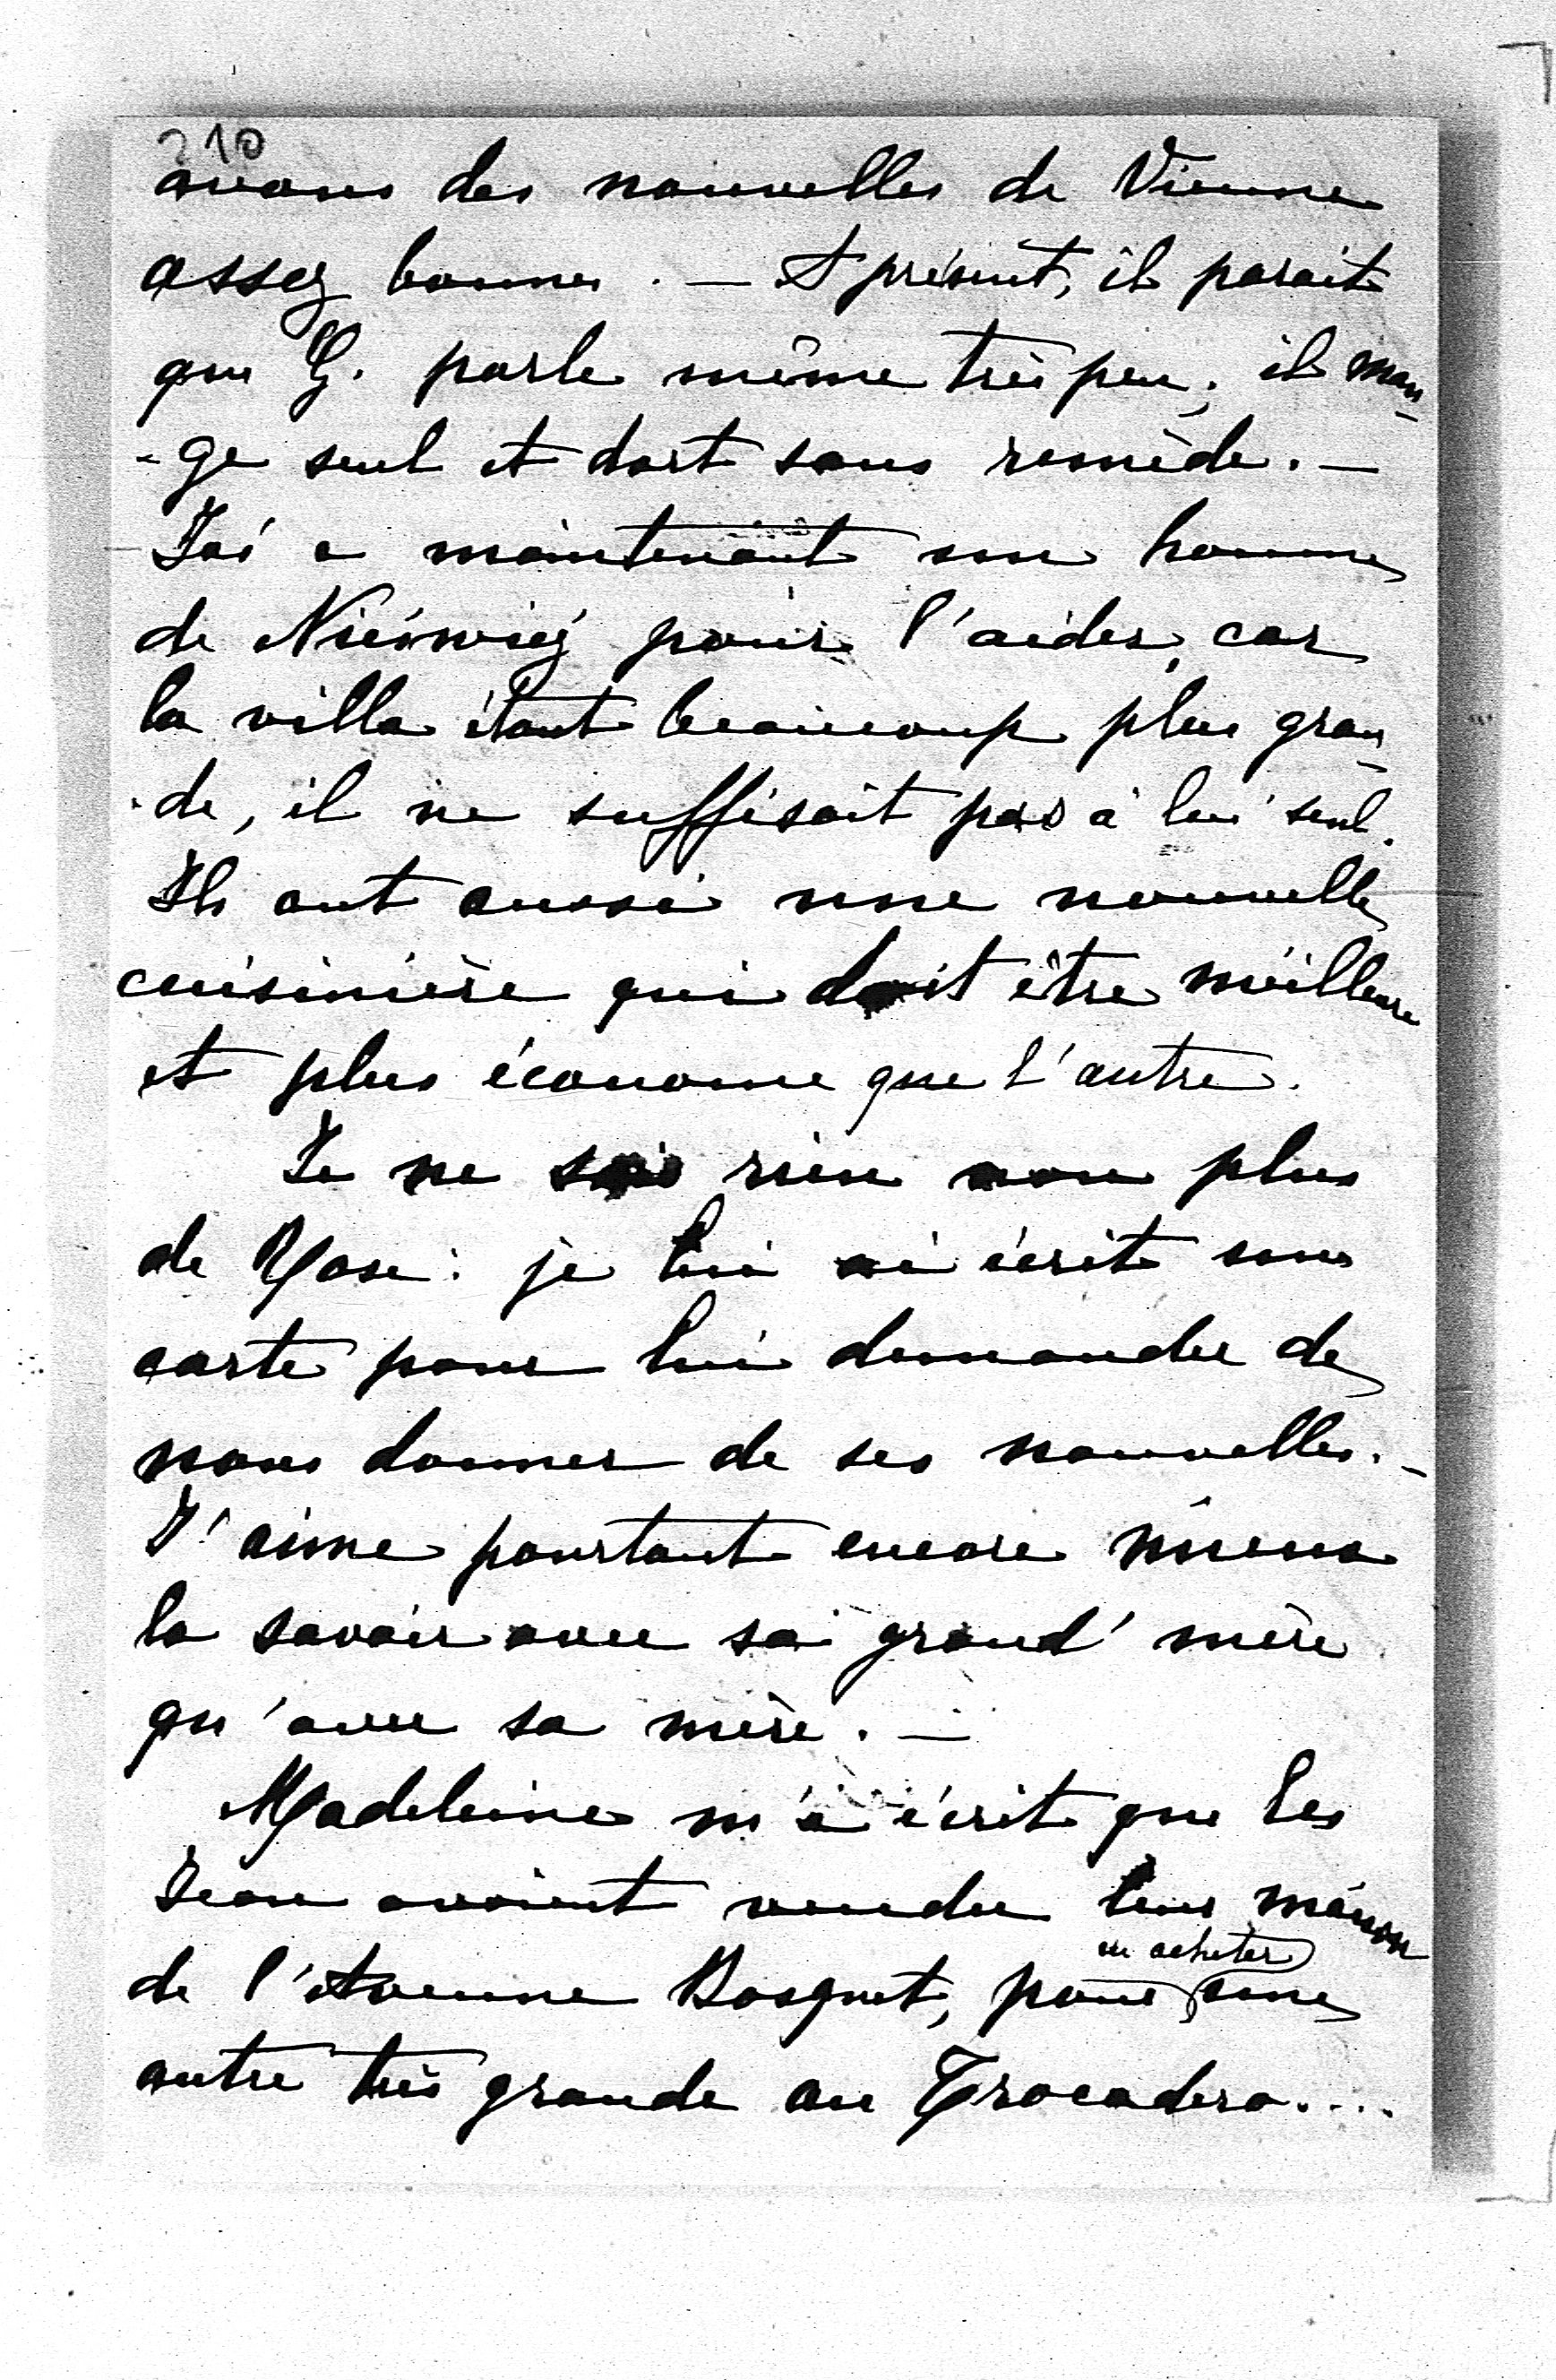 210
avons des nouvelles de Vienne
assez bonnes. — A présent, il parait
que G. parle même très peu; il man-
-ge seul et dort sans remède. —
a maintenant un homme
de Nieświéz pour l'aider, car
la villa étant beaucoup plus gran-
-de, il ne suffisait pas à lui seul.
Ils ont aussi une nouvelle
cuisinière qui doit être meilleure
et plus économe que l'autre.
Je ne sais rien non plus
de : je lui ai écrit une
carte pour lui demander de
nous donner de ses nouvelles. -
J'aime pourtant encore mieux
la savoir avec sa grand'mère
qu'avec sa mère. —
Madeleine m'a écrit que les
Jean avaient vendu leur maison
de l'Avenue Bosquet, pour en acheter une
autre très grande au Trocadero....